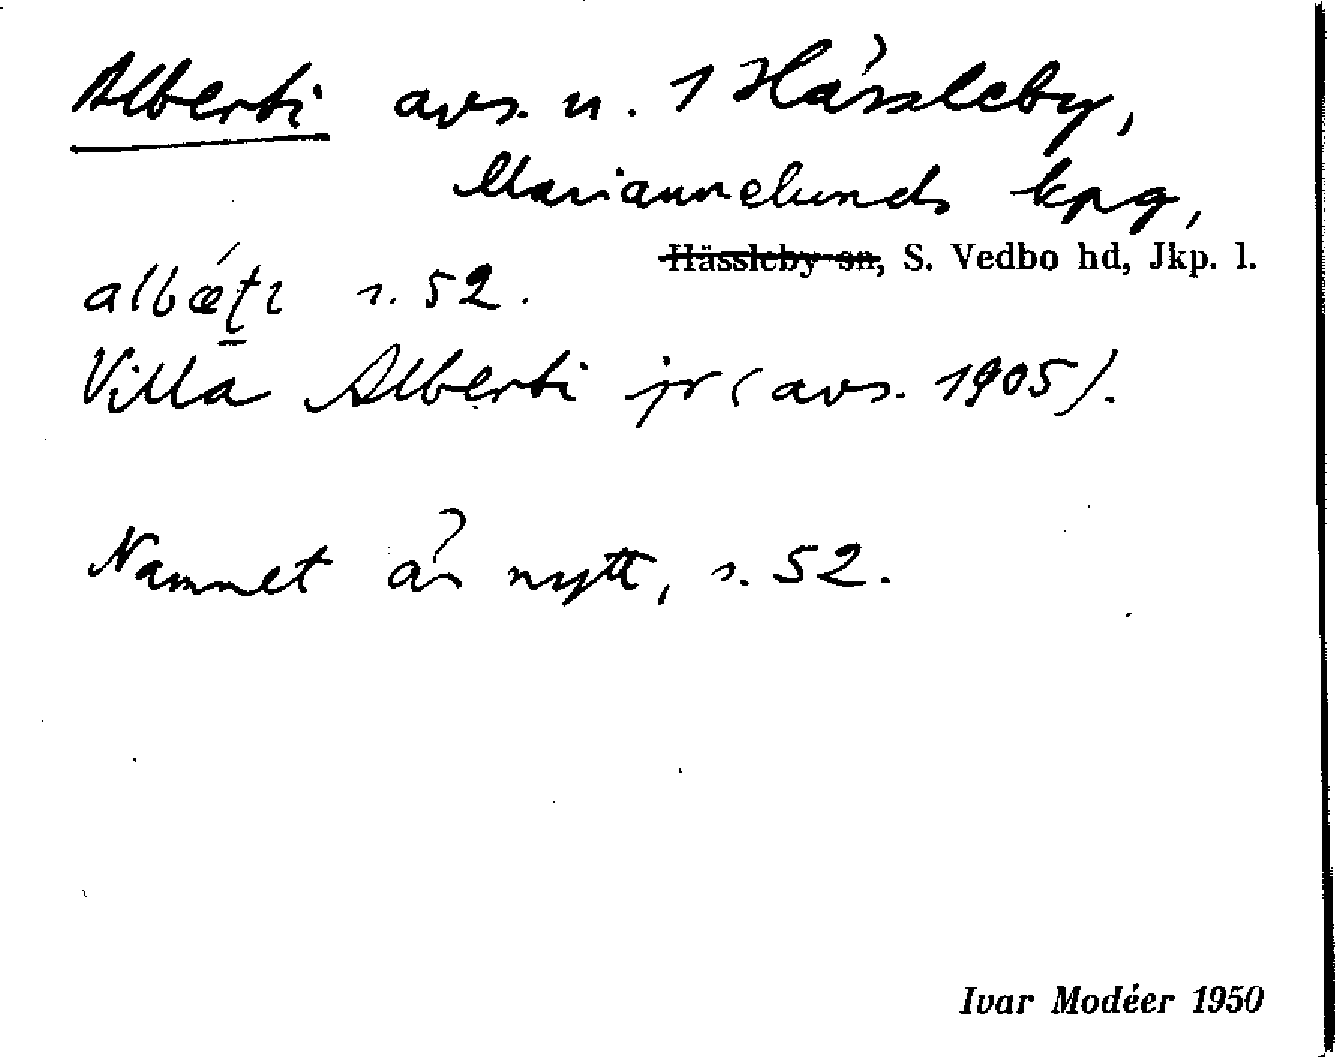 Alberti avs. u. 1 Hässleby,
Mariannelunds kpg,
Hässleby sn, S. Vedbo hd, Jkp. l.
albǽti s. 52.
Villa Alberti jr (avs. 1905).
Namnet är nytt, s. 52.
Ivar Modéer 1950